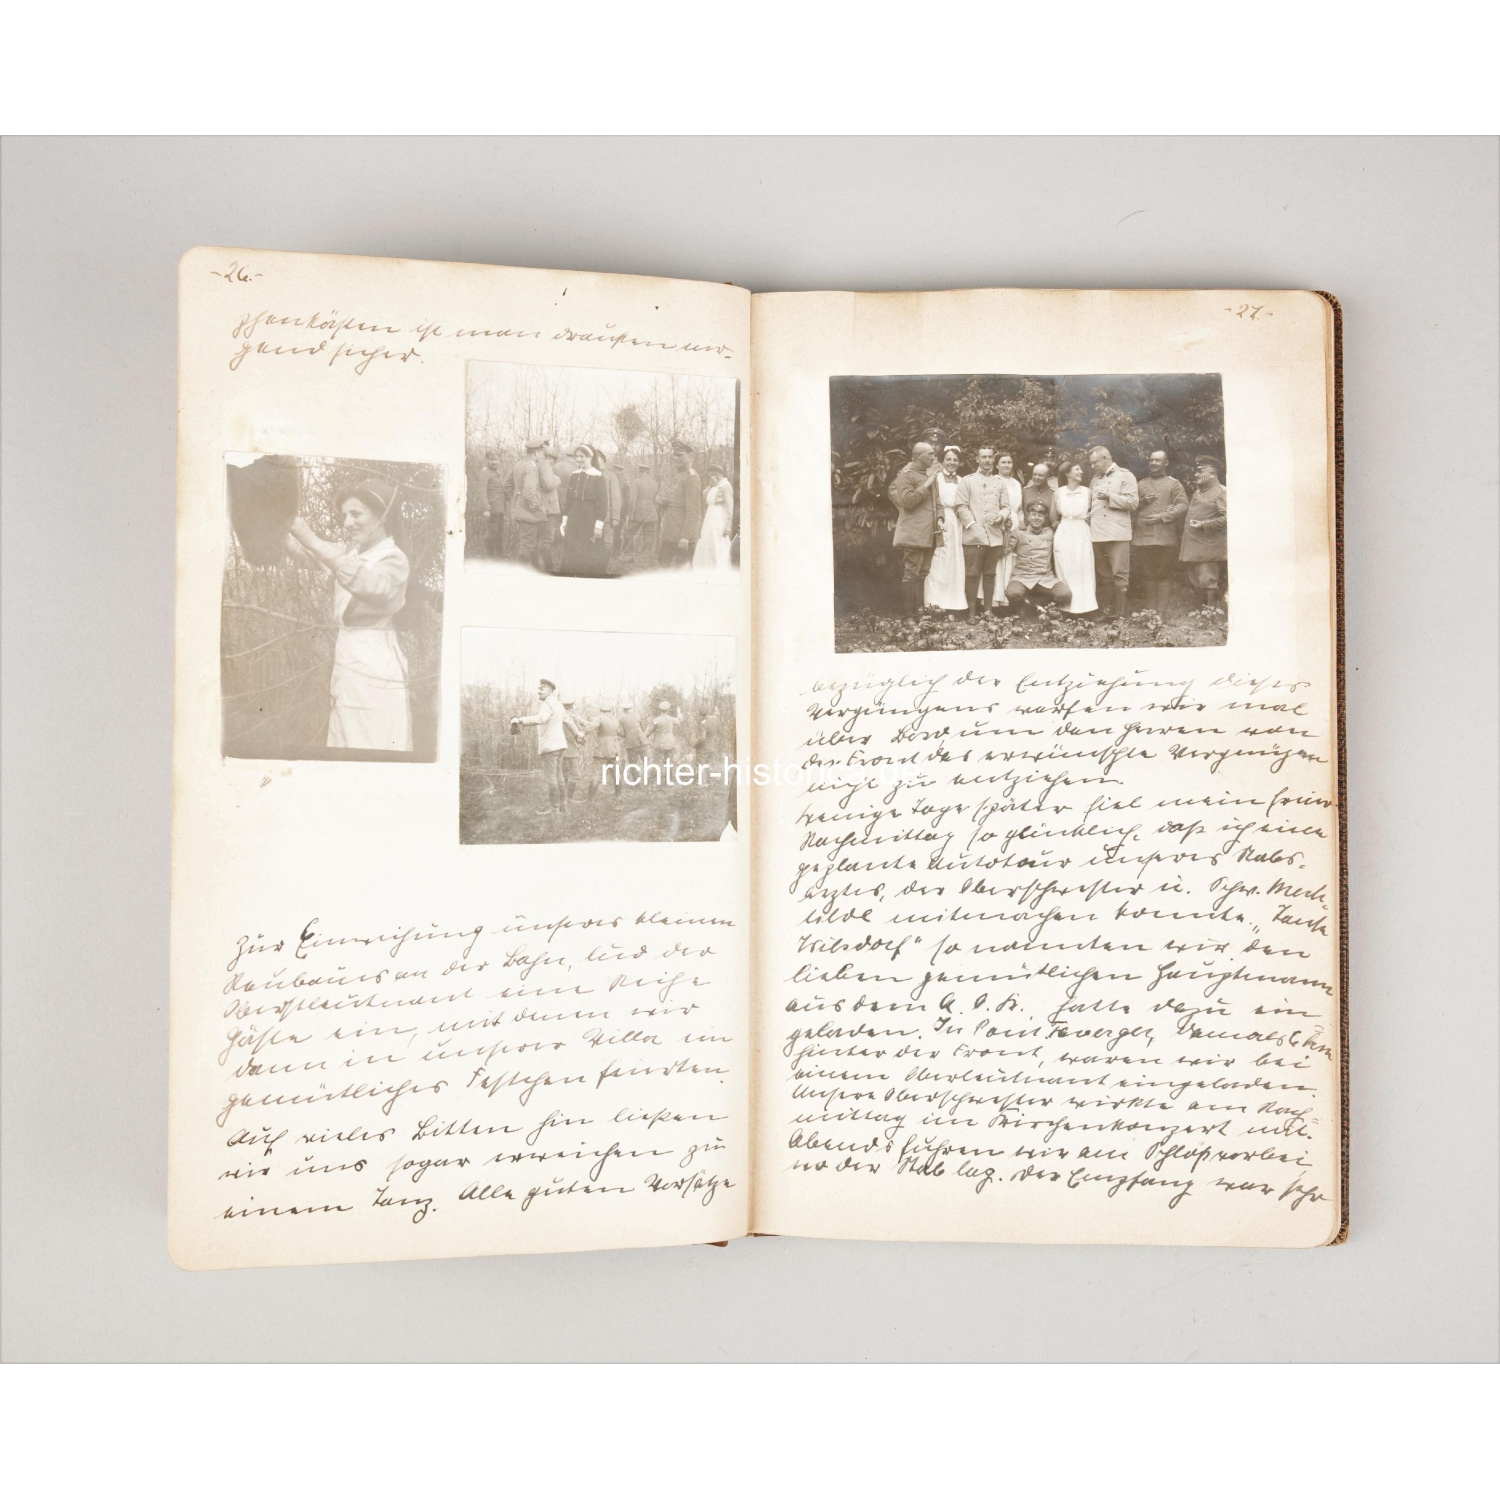 -26.-
ist man draußen nir-
gend sicher.
Zur Einweihung unseres kleinen
Neubaues an der Bahn, lud der
Oberstleutnant eine Reihe
Gäste ein, mit denen wir
dann in unserer Villa ein
gemütliches Festchen feierten.
Auf vieles Bitten hin ließen
wir uns sogar erweichen zu
einem Tanz. Alle guten Vorsätze
-27-
bezüglich der Entziehung dieses
Vergnügens warfen wir mal
über Bord, um den Herren von
der Front das erwünschte Vergnügen
nicht zu entziehen.
Wenige Tage später fiel mein freier
Nachmittag so glücklich, daß ich eine
geplante Autotour unseres Stabs-
arztes, der Oberschwester u. Schw. Mech-
tilde mitmachen konnte. „Tante
so nannten wir den
lieben gemütlichen Hauptmann
aus dem A. O. K. hatte dazu ein
geladen. In Pont Faverger, damals 6 km
hinter der Front, waren wir bei
einem Oberleutnant eingeladen.
Unsere Oberschwester wirkte am Nach-
mittag im Kirchenkonzert mit.
Abends fuhren wir am Schloß vorbei,
wo der Stab lag. Der Empfang war sehr
richter-historica.de